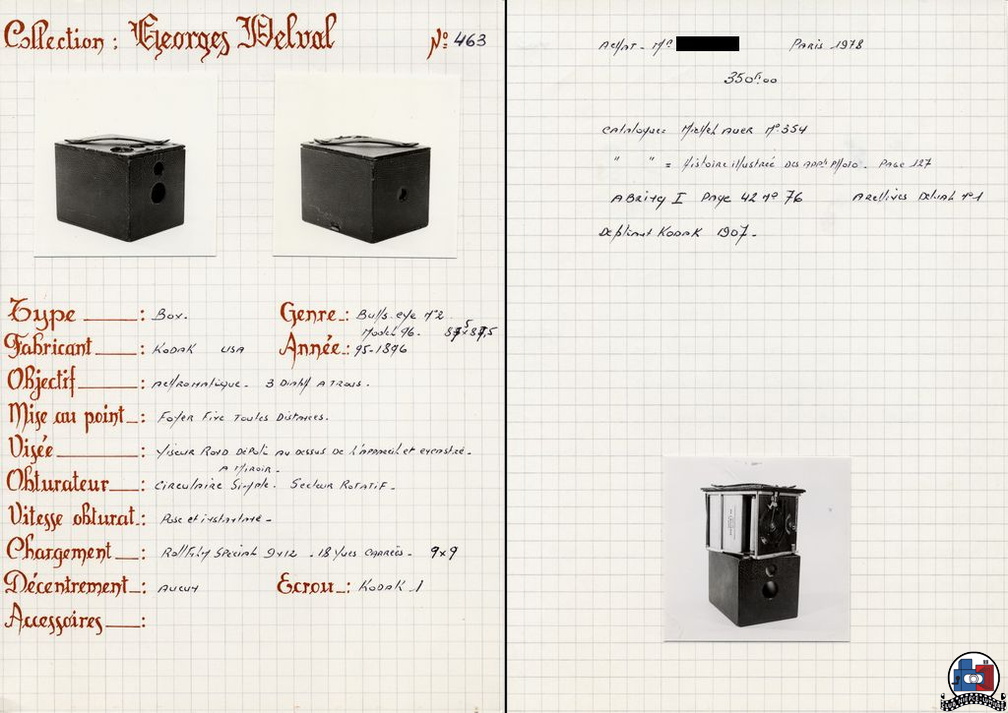 Collection : Georges Delval
No 463
Type : Box.
Genre : Bull's eye No2
Model 96.
Fabricant : KODAK USA
Année : 95-1896
Objectif : Achromatique. 3 Diaph A TROUS.
Mise au point : Foyer Fixe Toutes Distances.
Visée : Viseur Rond Dépoli au dessus de l'appareil et excentré.
A Miroir.
Obturateur : Circulaire Simple. Secteur Rotatif.
Vitesse obturat. : Pose et instantané.
Chargement : Rollfilm Special 9x12 - 18 Vues CARRÉES - 9x9
Décentrement : Aucun
Ecrou : Kodak 1
Accessoires :
Achat - Mr
Paris 1978
350frs00
Catalogue: Michel Auer No 354
" " = Histoire illustrée des app. Photo. Page 127
Abring I Page 42 no 76
Archives Delval no 1
Depliant Kodak 1907.